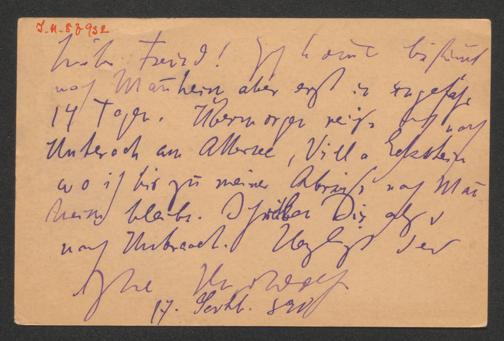 I.N. 87932
Lieber Freund! Ich komme bestimmt
nach Mannheim aber erst in ungefähr
14 Tagen. Übermorgen reise ich nach
Unterach am Attersee, Villa Eckstein
wo ich bis zu meiner Abreise nach Man
heim bleibe. Schreibe Dir also
nach Unterach. Herzlichst Dein
17. Sept. 890